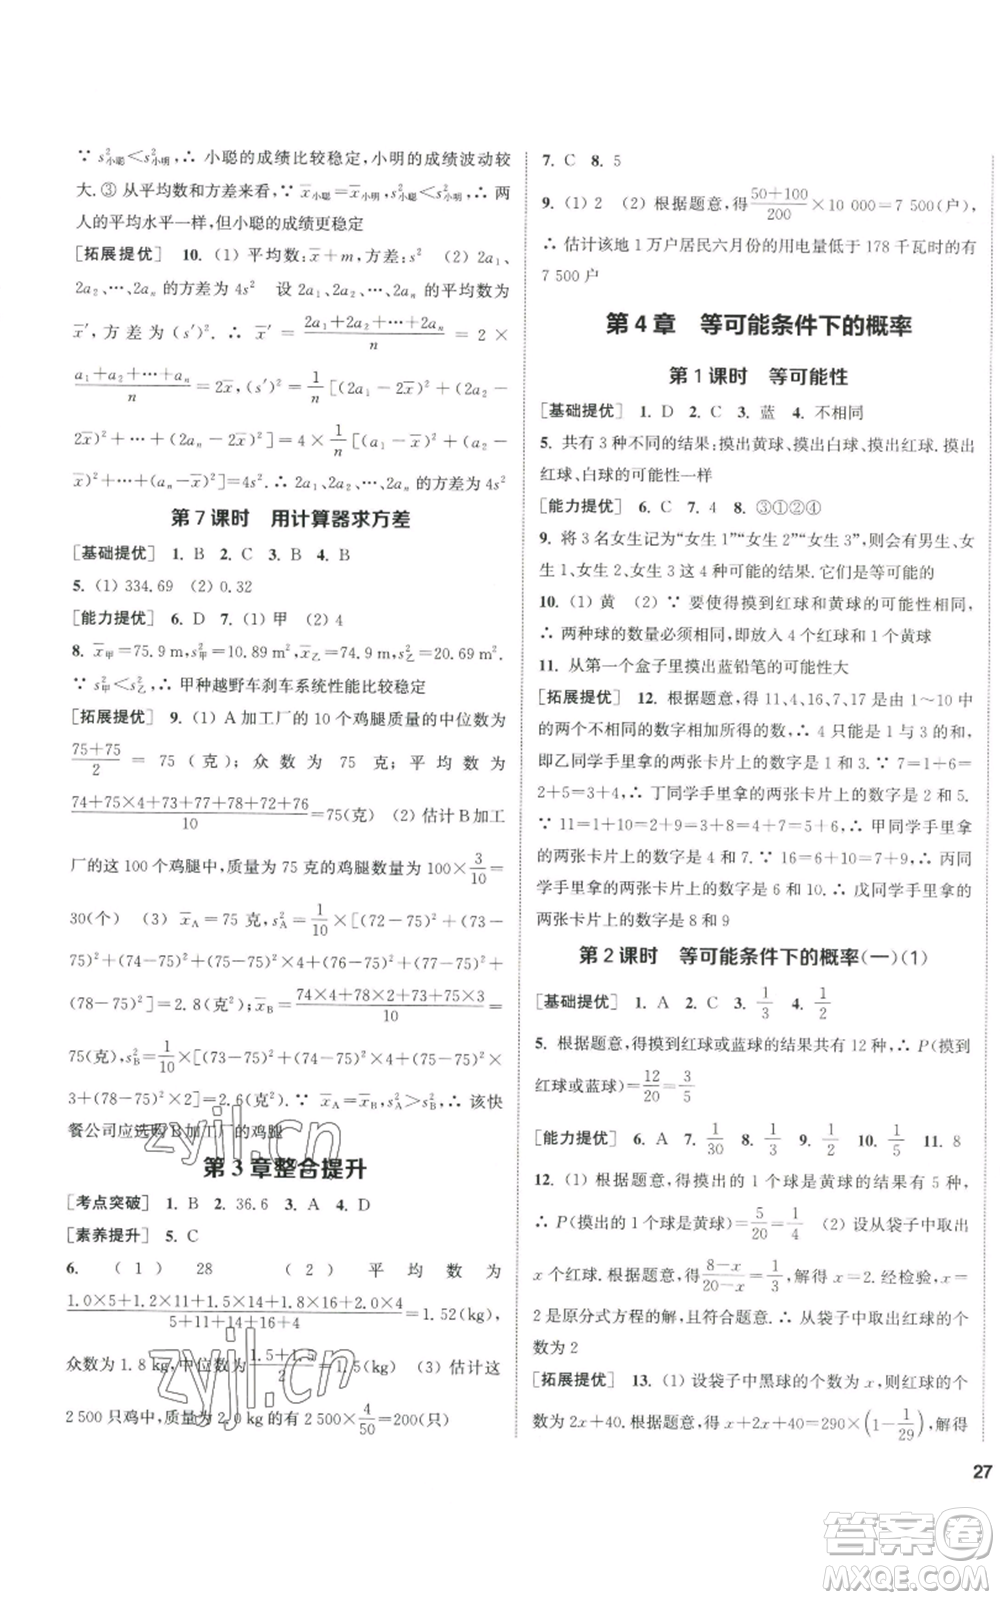 ∵ s²小聪＜s²小明，∴ 小聪的成绩比较稳定，小明的成绩波动较
大. ③ 从平均数和方差来看，∵ x̅小聪＝x̅小明，s²小聪＜s²小明，∴ 两
人的平均水平一样，但小聪的成绩更稳定
[拓展提优] 10. (1) 平均数：x̅＋m，方差：s² (2) 2a₁、
2a₂、…、2aₙ 的方差为 4s² 设 2a₁、2a₂、…、2aₙ 的平均数为
x̅′，方差为(s′)². ∴ x̅′＝(2a₁＋2a₂＋…＋2aₙ)/n＝2×
(a₁＋a₂＋…＋aₙ)/n＝2x̅，(s′)²＝1/n[(2a₁－2x̅)²＋(2a₂－
2x̅)²＋…＋(2aₙ－2x̅)²]＝4×1/n[(a₁－x̅)²＋(a₂－
x̅)²＋…＋(aₙ－x̅)²]＝4s². ∴ 2a₁、2a₂、…、2aₙ 的方差为 4s²
第 7 课时 用计算器求方差
[基础提优] 1. B 2. C 3. B 4. B
5. (1) 334.69 (2) 0.32
[能力提优] 6. D 7. (1) 甲 (2) 4
8. x̅甲＝75.9 m，s²甲＝10.89 m²，x̅乙＝75.9 m，s²乙＝20.69 m².
∵ s²甲＜s²乙，∴ 甲种越野车刹车系统性能比较稳定
[拓展提优] 9. (1) A 加工厂的 10 个鸡腿质量的中位数为
(75＋75)/2＝75(克)；众数为 75 克；平均数为
(74＋75×4＋73＋77＋78＋72＋76)/10＝75(克) (2) 估计 B 加工
厂的这 100 个鸡腿中，质量为 75 克的鸡腿有 100×3/10＝
30(个) (3) x̅A＝75 克，s²A＝1/10×[(72－75)²＋(73－
75)²＋(74－75)²＋4×(75－75)²＋(76－75)²＋(77－75)²＋
(78－75)²]＝2.8(克²)；x̅B＝(74×4＋78×2＋73＋75×3)/10＝
75(克)，s²B＝1/10×[(73－75)²＋(74－75)²×4＋(75－75)²×
3＋(78－75)²×2]＝2.6(克²). ∵ x̅A＝x̅B，s²A＞s²B，∴ 该快
餐公司应选购 B 加工厂的鸡腿
第 3 章整合提升
[考点突破] 1. B 2. 36.6 3. A 4. D
[素养提升] 5. C
6. (1) 28 (2) 平均数为
(1.0×5＋1.2×11＋1.5×14＋1.8×16＋2.0×4)/(5＋11＋14＋16＋4)＝1.52(kg)，
众数为 1.8 kg，中位数为(1.5＋1.5)/2＝1.5(kg) (3) 估计这
2 500 只鸡中，质量为 2.0 kg 的有 2 500×4/50＝200(只)
7. C 8. 5
9. (1) 2 (2) 根据题意，得(50＋100)/200×10 000＝7 500(户)，
∴ 估计该地 1 万户居民六月份的用电量低于 178 千瓦时的有
7 500 户
第 4 章 等可能条件下的概率
第 1 课时 等可能性
[基础提优] 1. D 2. C 3. 蓝 4. 不相同
5. 共有 3 种不同的结果：摸出黄球、摸出白球、摸出红球. 摸出
红球、白球的可能性一样
[能力提优] 6. C 7. 4 8. ③①②④
9. 将 3 名女生记为“女生 1”“女生 2”“女生 3”，则会有男生、女
生 1、女生 2、女生 3 这 4 种等可能的结果. 它们是等可能的
10. (1) 黄 (2) ∵ 要使得摸到红球和黄球的可能性相同，
∴ 两种球的数量必须相同，∴ 放入 4 个红球和 1 个黄球
11. 从第一个盒子里摸出蓝铅笔的可能性大
[拓展提优] 12. 根据题意，得 11、4、16、7、17 是由 1～10 中
的两个不相同的数字相加所得的数，∴ 4 只能是 1 与 3 的和，
即乙同学手里拿的两张卡片上的数字是 1 和 3. ∵ 7＝1＋6＝
2＋5＝3＋4，∴ 丁同学手里拿的两张卡片上的数字是 2 和 5.
∵ 11＝1＋10＝2＋9＝3＋8＝4＋7＝5＋6，∴ 甲同学手里拿
的两张卡片上的数字是 4 和 7. ∵ 16＝10＋6＝7＋9，∴ 丙同
学手里拿的两张卡片上的数字是 6 和 10. ∴ 戊同学手里拿的
两张卡片上的数字是 8 和 9
第 2 课时 等可能条件下的概率(一)(1)
[基础提优] 1. A 2. C 3. 1/3 4. 1/2
5. 根据题意，得摸到红球或蓝球的结果共有 12 种，∴ P(摸到
红球或蓝球)＝12/20＝3/5
[能力提优] 6. A 7. 1/30 8. 3/4 9. 1/5 10. 1/5 11. 8
12. (1) 根据题意，得摸出的 1 个球是黄球的结果有 5 种，
∴ P(摸出的 1 个球是黄球)＝5/20＝1/4 (2) 设从袋子中取出
x 个红球. 根据题意，得(8－x)/(20－x)＝1/3，解得 x＝2. 经检验，x＝
2 是原分式方程的解，且符合题意. ∴ 从袋子中取出红球的个
数为 2
[拓展提优] 13. (1) 设袋子中黑球的个数为 x，则红球的个
数为 2x＋40. 根据题意，得 x＋2x＋40＝290×(1－1/29)，解得
27
zyjl.cn
zyjl.cn
答案卷
MXQE.COM